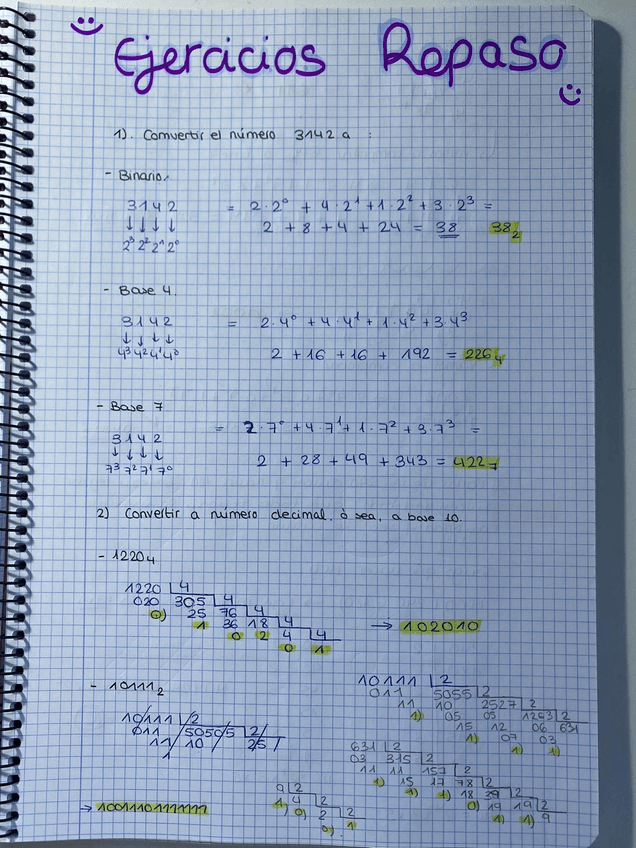 Ejercicios Repaso
1). Comvertir el número 3142 a :
- Binario.
3142 = 2·2⁰ + 4·2¹ + 1·2² + 3·2³ =
↓↓↓↓ 2 + 8 + 4 + 24 = 38 38₂
2³ 2² 2¹ 2⁰
- Base 4.
3142 = 2·4⁰ + 4·4¹ + 1·4² + 3·4³
↓↓↓↓
4³ 4² 4¹ 4⁰ 2 + 16 + 16 + 192 = 226₄
- Base 7
3142 = 2·7⁰ + 4·7¹ + 1·7² + 3·7³ =
↓↓↓↓
7³ 7² 7¹ 7⁰ 2 + 28 + 49 + 343 = 422₇
2) Convertir a número decimal, o sea, a base 10.
- 1220₄
1220 4
020 305 4
0) 25 76 4
1 36 18 4
0 2 4 4
0 1
→ 102010
- 10111₂
10111 2
011 50505 2
11 10 25
1
10111 2
011 5055 2
11 10 2527 2
1) 05 05 1263 2
15 12 06 631
1) 07 03
1) 1)
631 2
03 315 2
11 11 157 2
1) 15 17 78 2
1) 1) 18 39 2
0) 19 19 2
1) 1) 9
9 2
1) 4 2
0) 2 2
0) 1
→ 1001110111111